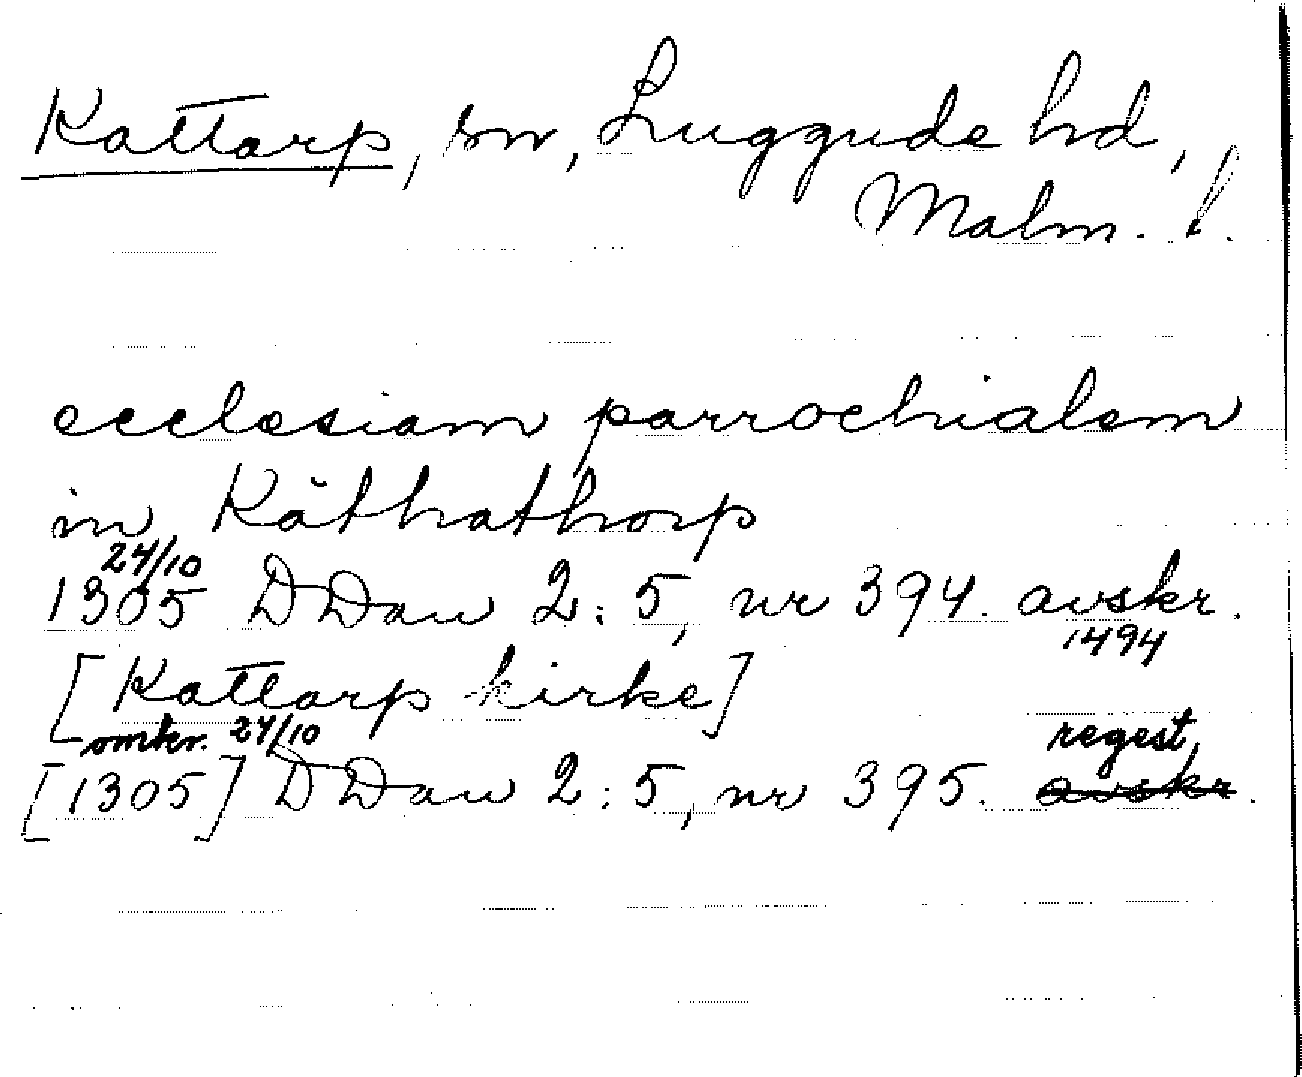 Kattarp, sn, Luggude hd,
Malm. l.
ecclesiam parrochialem
in Käthathorp
24/10
1305 DDan 2:5, nr 394. avskr.
1494
[Kattarp kirke]
omkr. 24/10 regest,
[1305] DDan 2:5, nr 395. avskr.